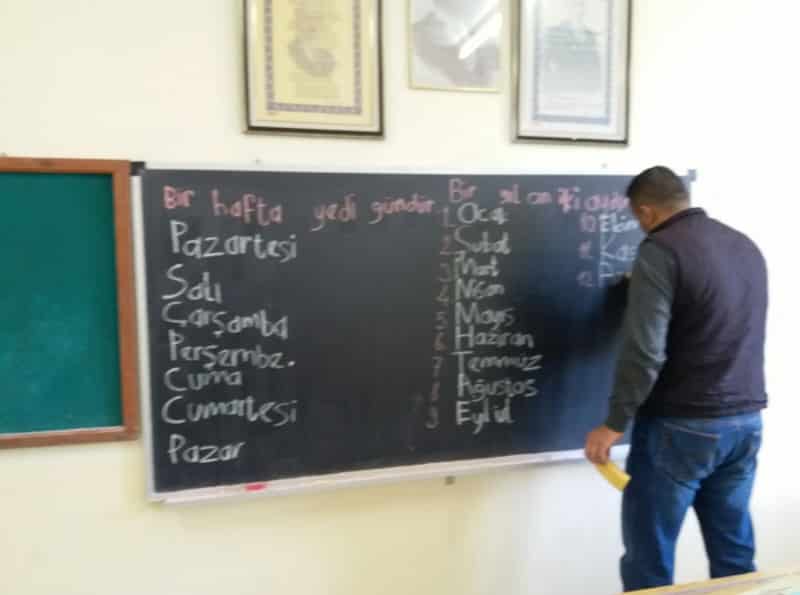 Bir hafta yedi gündür.
Pazartesi
Salı
Çarşamba
Perşembe.
Cuma
Cumartesi
Pazar
Bir yıl on iki aydır
1 Ocak
2 Şubat
3 Mart
4 Nisan
5 Mayıs
6 Haziran
7 Temmuz
8 Ağustos
9 Eylül
10 Ekim
11 Kas
12